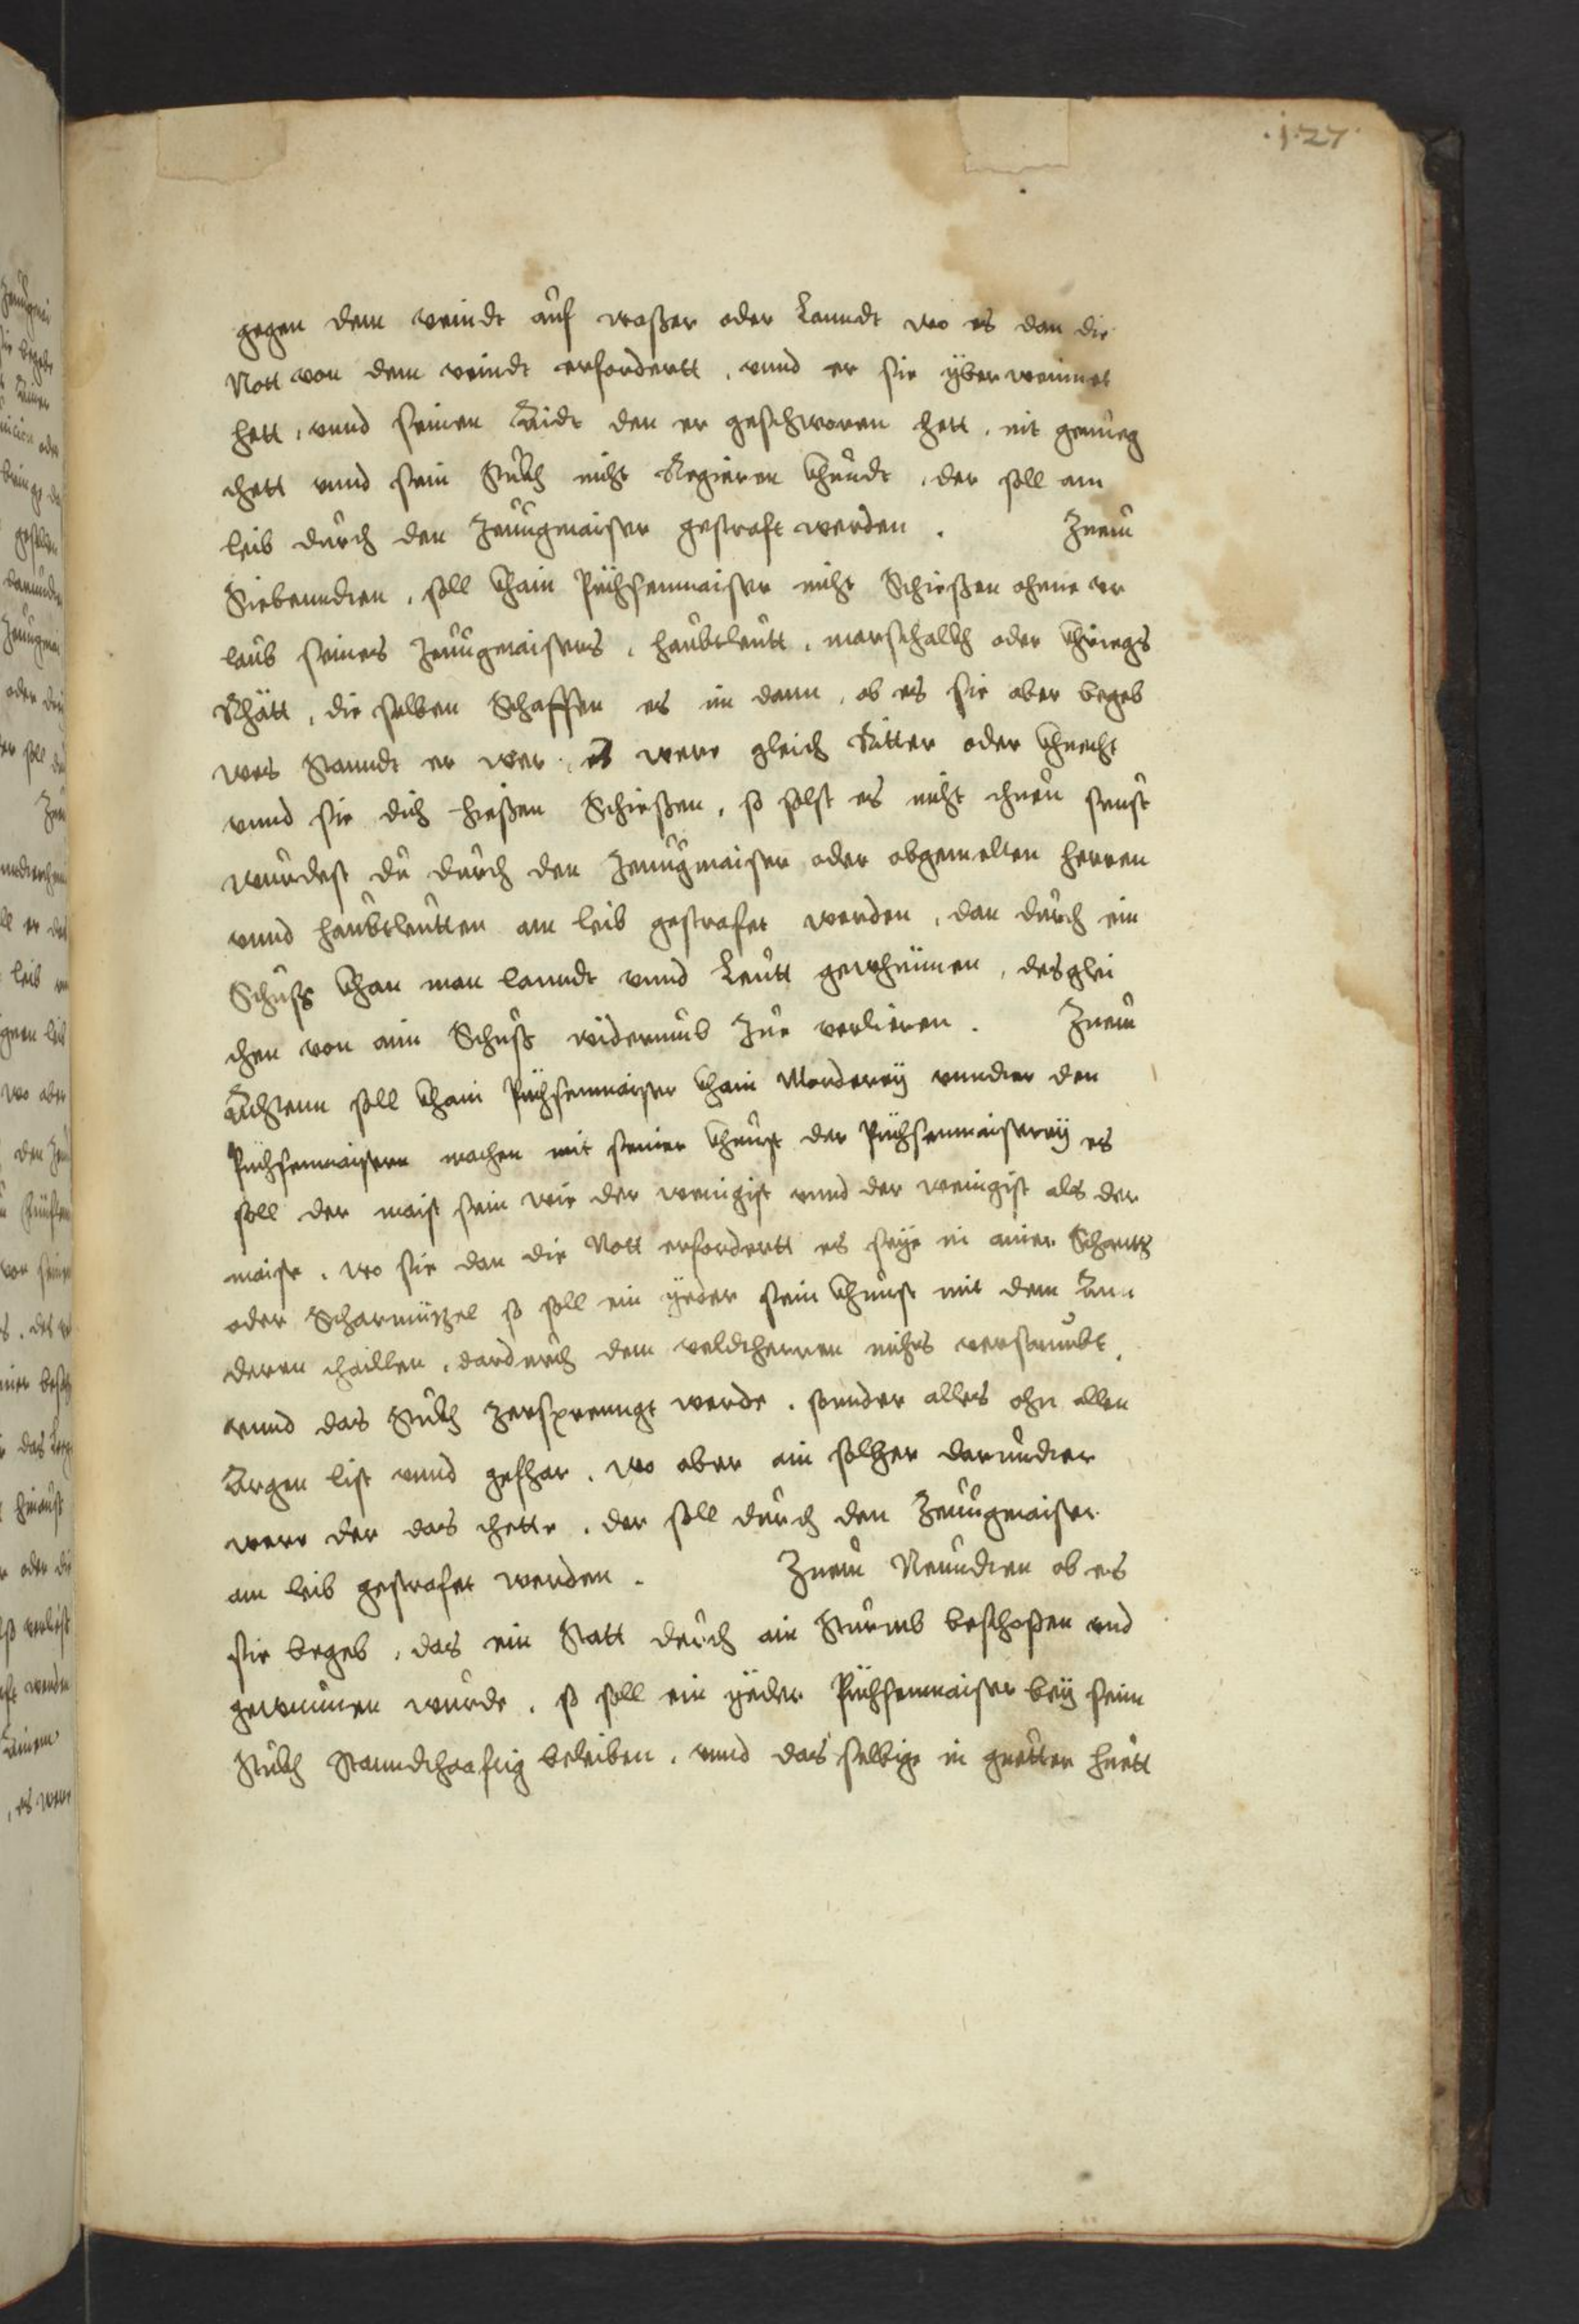 .1.27.
gegen dem veindt auf waßer oder Lanndt wo es dan die
Nott von dem veindt erfordertt . vnnd er sie yberweinnet
hett . vnnd seinen Aidt den er geschworen hett . nit genueg
thett vnnd sein Stukh nicht Regieren khundt . der soll am
leib durch den Zeuugmaister gestraft werden . Zuem
Siebenndten . soll khain Püchsenmaister nicht Schießen ohne er
laub seines Zeuugmaisters . haubtleutt . marschalkh oder khriegs
Rhätt . die selben Schaffen es im dann . ob es sie aber begeb
wes Stanndt er wer . es were gleich Ritter oder khnecht
vnnd sie dich hießen Schießen . so solst es nicht thuen sunst
wurdest du durch den Zeuugmaister oder obgemelten herren
vnnd haubtleutten am leib gestrafet werden . dan durch ein
Schuß khan man lanndt vnnd Leutt gewheinnen . desglei
chen von ain Schuß widerumb Zue verlieren . Zuem
Achtenn soll khain Püchsenmaister khain Mentterey vnnder den
Püchsenmaistern machen mit seiner khunst der Püchsenmaisterey es
soll der maist sein wie der wenigist vnnd der wenigist als der
maist . wo sie dan die Nott erfordertt es seye in ainer Schantz
oder Scharmützel so soll ein yeder sein khunst mit dem Ann
deren thaillen . dardurch dem veldtherren nichts versaumbt
vnnd das Stukh zersprenngt werde . sonder alles ohn allen
Argen list vnnd gefhar . wo aber ain solher darundter
were der das thette . der soll durch den Zeuugmaister
am leib gestrafet werden . Zuem Neundten ob es
sie begeb . das ein Statt durch ain Sturmb beschoßen vnd
gewunnen wurde . so soll ein yeder Püchsenmaister bey seim
Stukh Stanndthaftig beleiben . vnnd das selbige in guetter huett